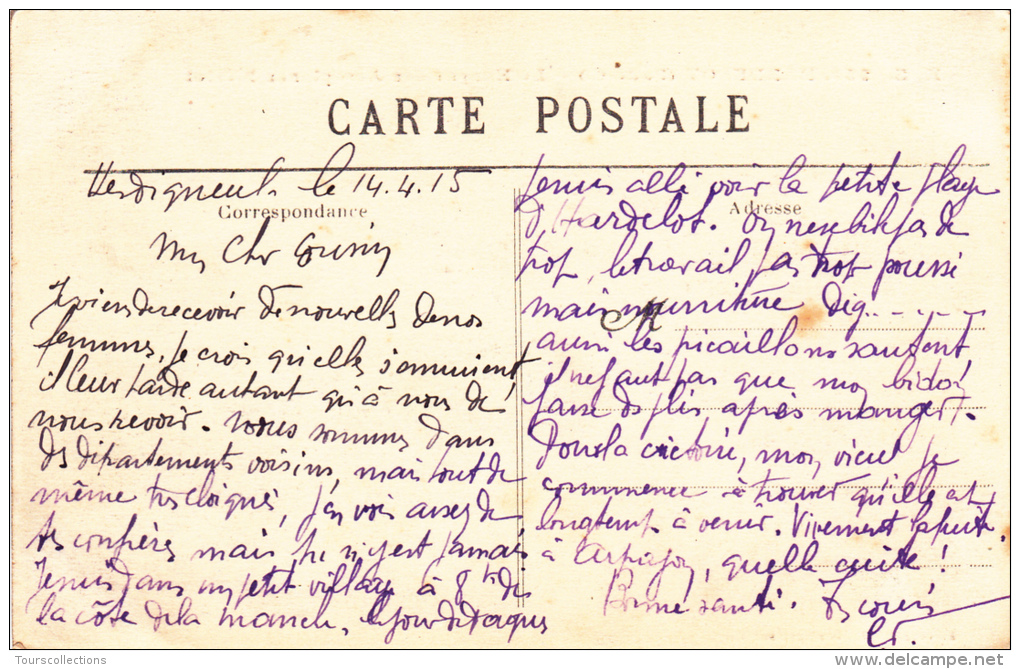 CARTE POSTALE
le 14.4.15
Correspondance
Mon Cher Cousin
Je viens de recevoir de nouvelles de nos
femmes, je crois qu'elles s'ennuient,
il leur tarde autant qu'à nous de
nous revoir. Nous sommes dans
des départements voisins, mais tout de
même très éloignés, j'en vois assez de
tes confrères mais je n'y est jamais
Je suis dans un petit village à 8 de
la côte de la manche, le jour de Paques
Je suis allé voir la petite plage
Adresse
d'Hardelot. On ne se bile pas de
trop, le travail pas trop poussé
mais nourriture dég........
aussi les picaillons sautent,
il ne faut pas que mon bidon
fasse des plis après manger.
Dans la victoire, mon vieux je
commence à trouver qu'elle est
longtemps à venir. Vivement la fuite
à Arpajon, quelle cuite!
Bonne santé. Ton cousin
Tourscollections
delcampe.net